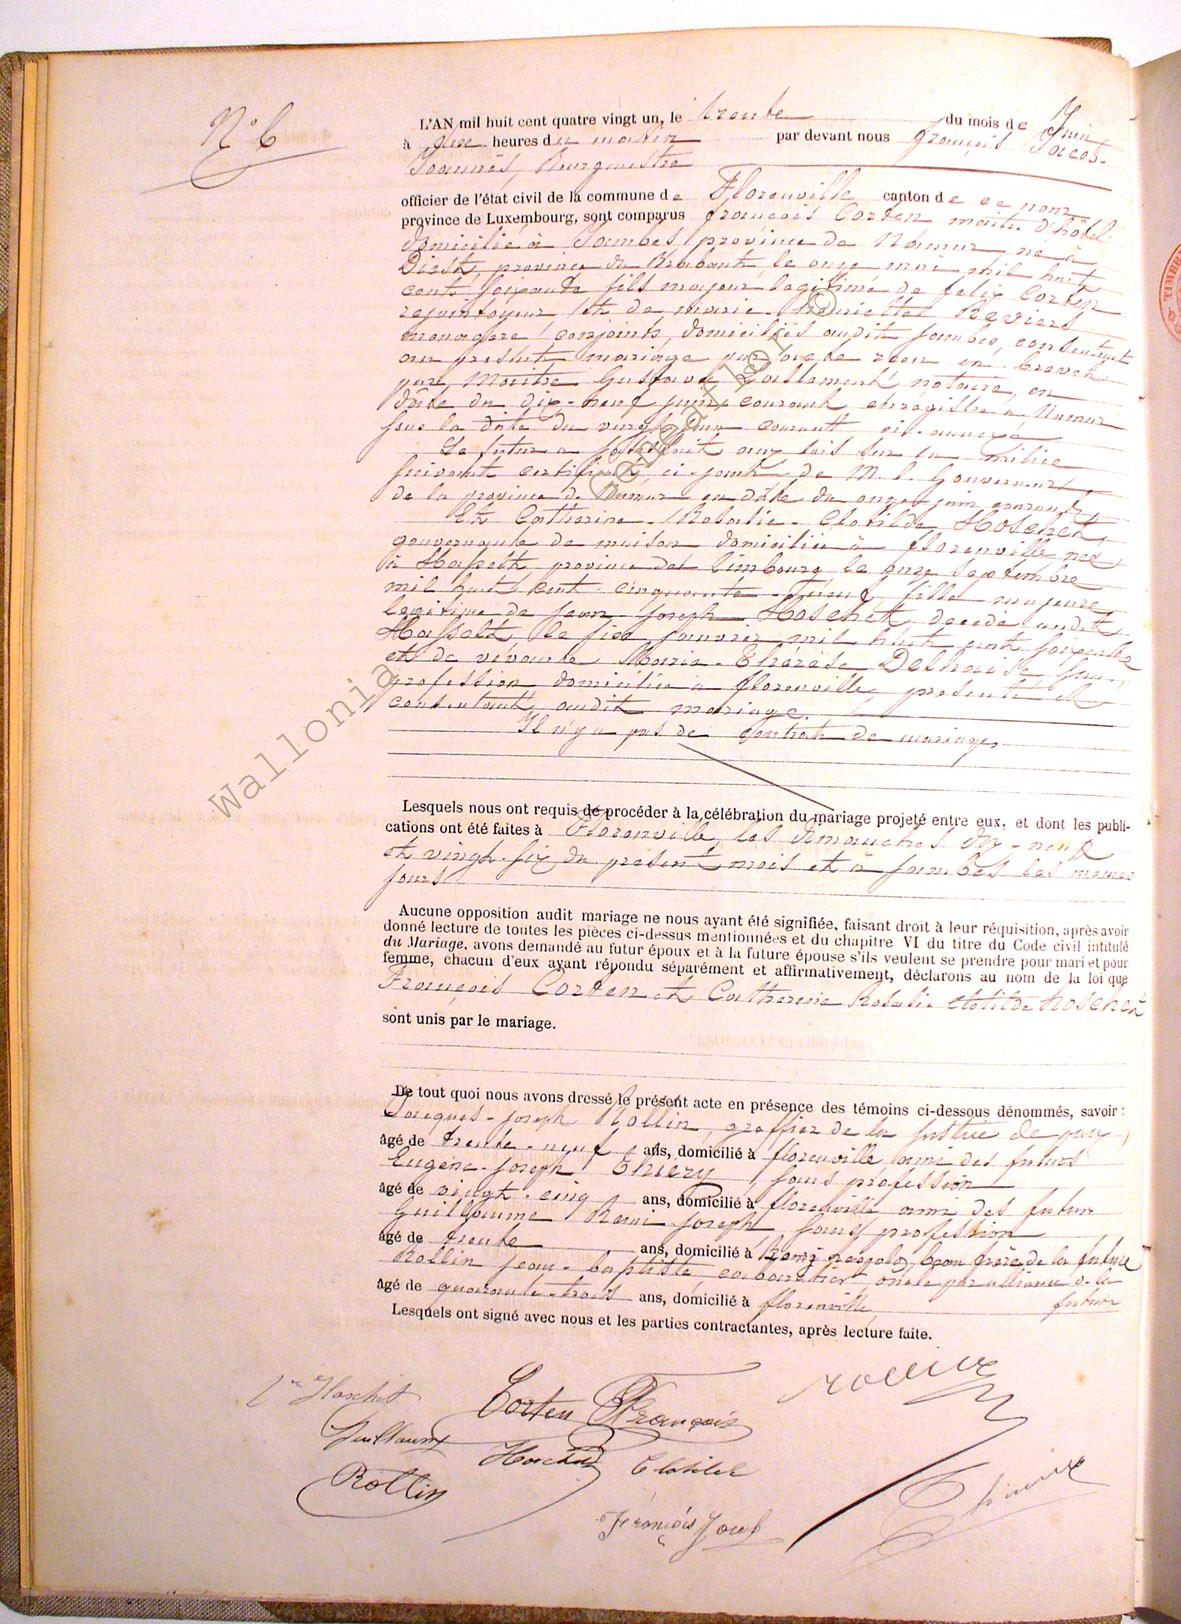 N° 6
L'AN mil huit cent quatre vingt un, le trente du mois de Juin
à dix heures du matin par devant nous François Jacob
Joannès, Bourgmestre
officier de l'état civil de la commune de Florenville canton de ce nom
province de Luxembourg, sont comparus François Corten maitre d'hôtel
domicilié à Jambes province de Namur né à
Diest, province du Brabant, le onze mai mil huit
cent soixante fils majeur légitime de Felix Corten
et de Marie Henriette Reviers
ménagère conjoints, domiciliés audit Jambes, consentant
au présent mariage par acte reçu en brevet
par Maitre Gustave notaire, en
date du dix-neuf juin courant enregistré à Namur
sous la date du vingt un courant ci-annexé
Le futur a satisfait aux lois sur la milice
suivant certificat ci-joint de M. l. Gouverneur
de la province de Namur en date du onze juin courant
Et Catherine-Rosalie-Clotilde Hoschet,
gouvernante de maison domiciliée à Florenville née
à Hasselt province de Limbourg le onze septembre
mil huit cent cinquante-neuf, fille majeure
légitime de Jean-Joseph Hoschet, décédé audit
Hasselt, le six janvier mil huit cent soixante
et de vivante Marie-Thérèse Delhaise sans
profession domiciliée à Florenville, présent et
consentant audit mariage.
Il n'y a pas de contrat de mariage.
Lesquels nous ont requis de procéder à la célébration du mariage projeté entre eux, et dont les publi-
cations ont été faites à Florenville, les dimanches dix-neuf
et vingt-six du présent mois et à Jambes les mêmes
jours
Aucune opposition audit mariage ne nous ayant été signifiée, faisant droit à leur réquisition, après avoir
donné lecture de toutes les pièces ci-dessus mentionnées et du chapitre VI du titre du Code civil intitulé
du Mariage, avons demandé au futur époux et à la future épouse s'ils veulent se prendre pour mari et pour
femme, chacun d'eux ayant répondu séparément et affirmativement, déclarons au nom de la loi que
François Corten et Catherine Rosalie Clotilde Hoschet
sont unis par le mariage.
De tout quoi nous avons dressé le présent acte en présence des témoins ci-dessous dénommés, savoir :
Jacques-Joseph Rollin, greffier de la justice de paix,
âgé de trente-neuf ans, domicilié à Florenville ami des futurs
Eugène-Joseph Thiery, sans profession
âgé de vingt-cinq ans, domicilié à Florenville ami des futurs
Guillaume Remi Joseph sans profession
âgé de trente ans, domicilié à beau frère de la future
Rollin Jean-Baptiste, cabaretier, oncle par alliance de la
âgé de quarante-trois ans, domicilié à Florenville future
Lesquels ont signé avec nous et les parties contractantes, après lecture faite.
Hoschet
Corten François
Rollin
Guillaume
Hoschet Clotilde
Rollin
François Jacob
Thiery
Wallonia
©
TIMBRE